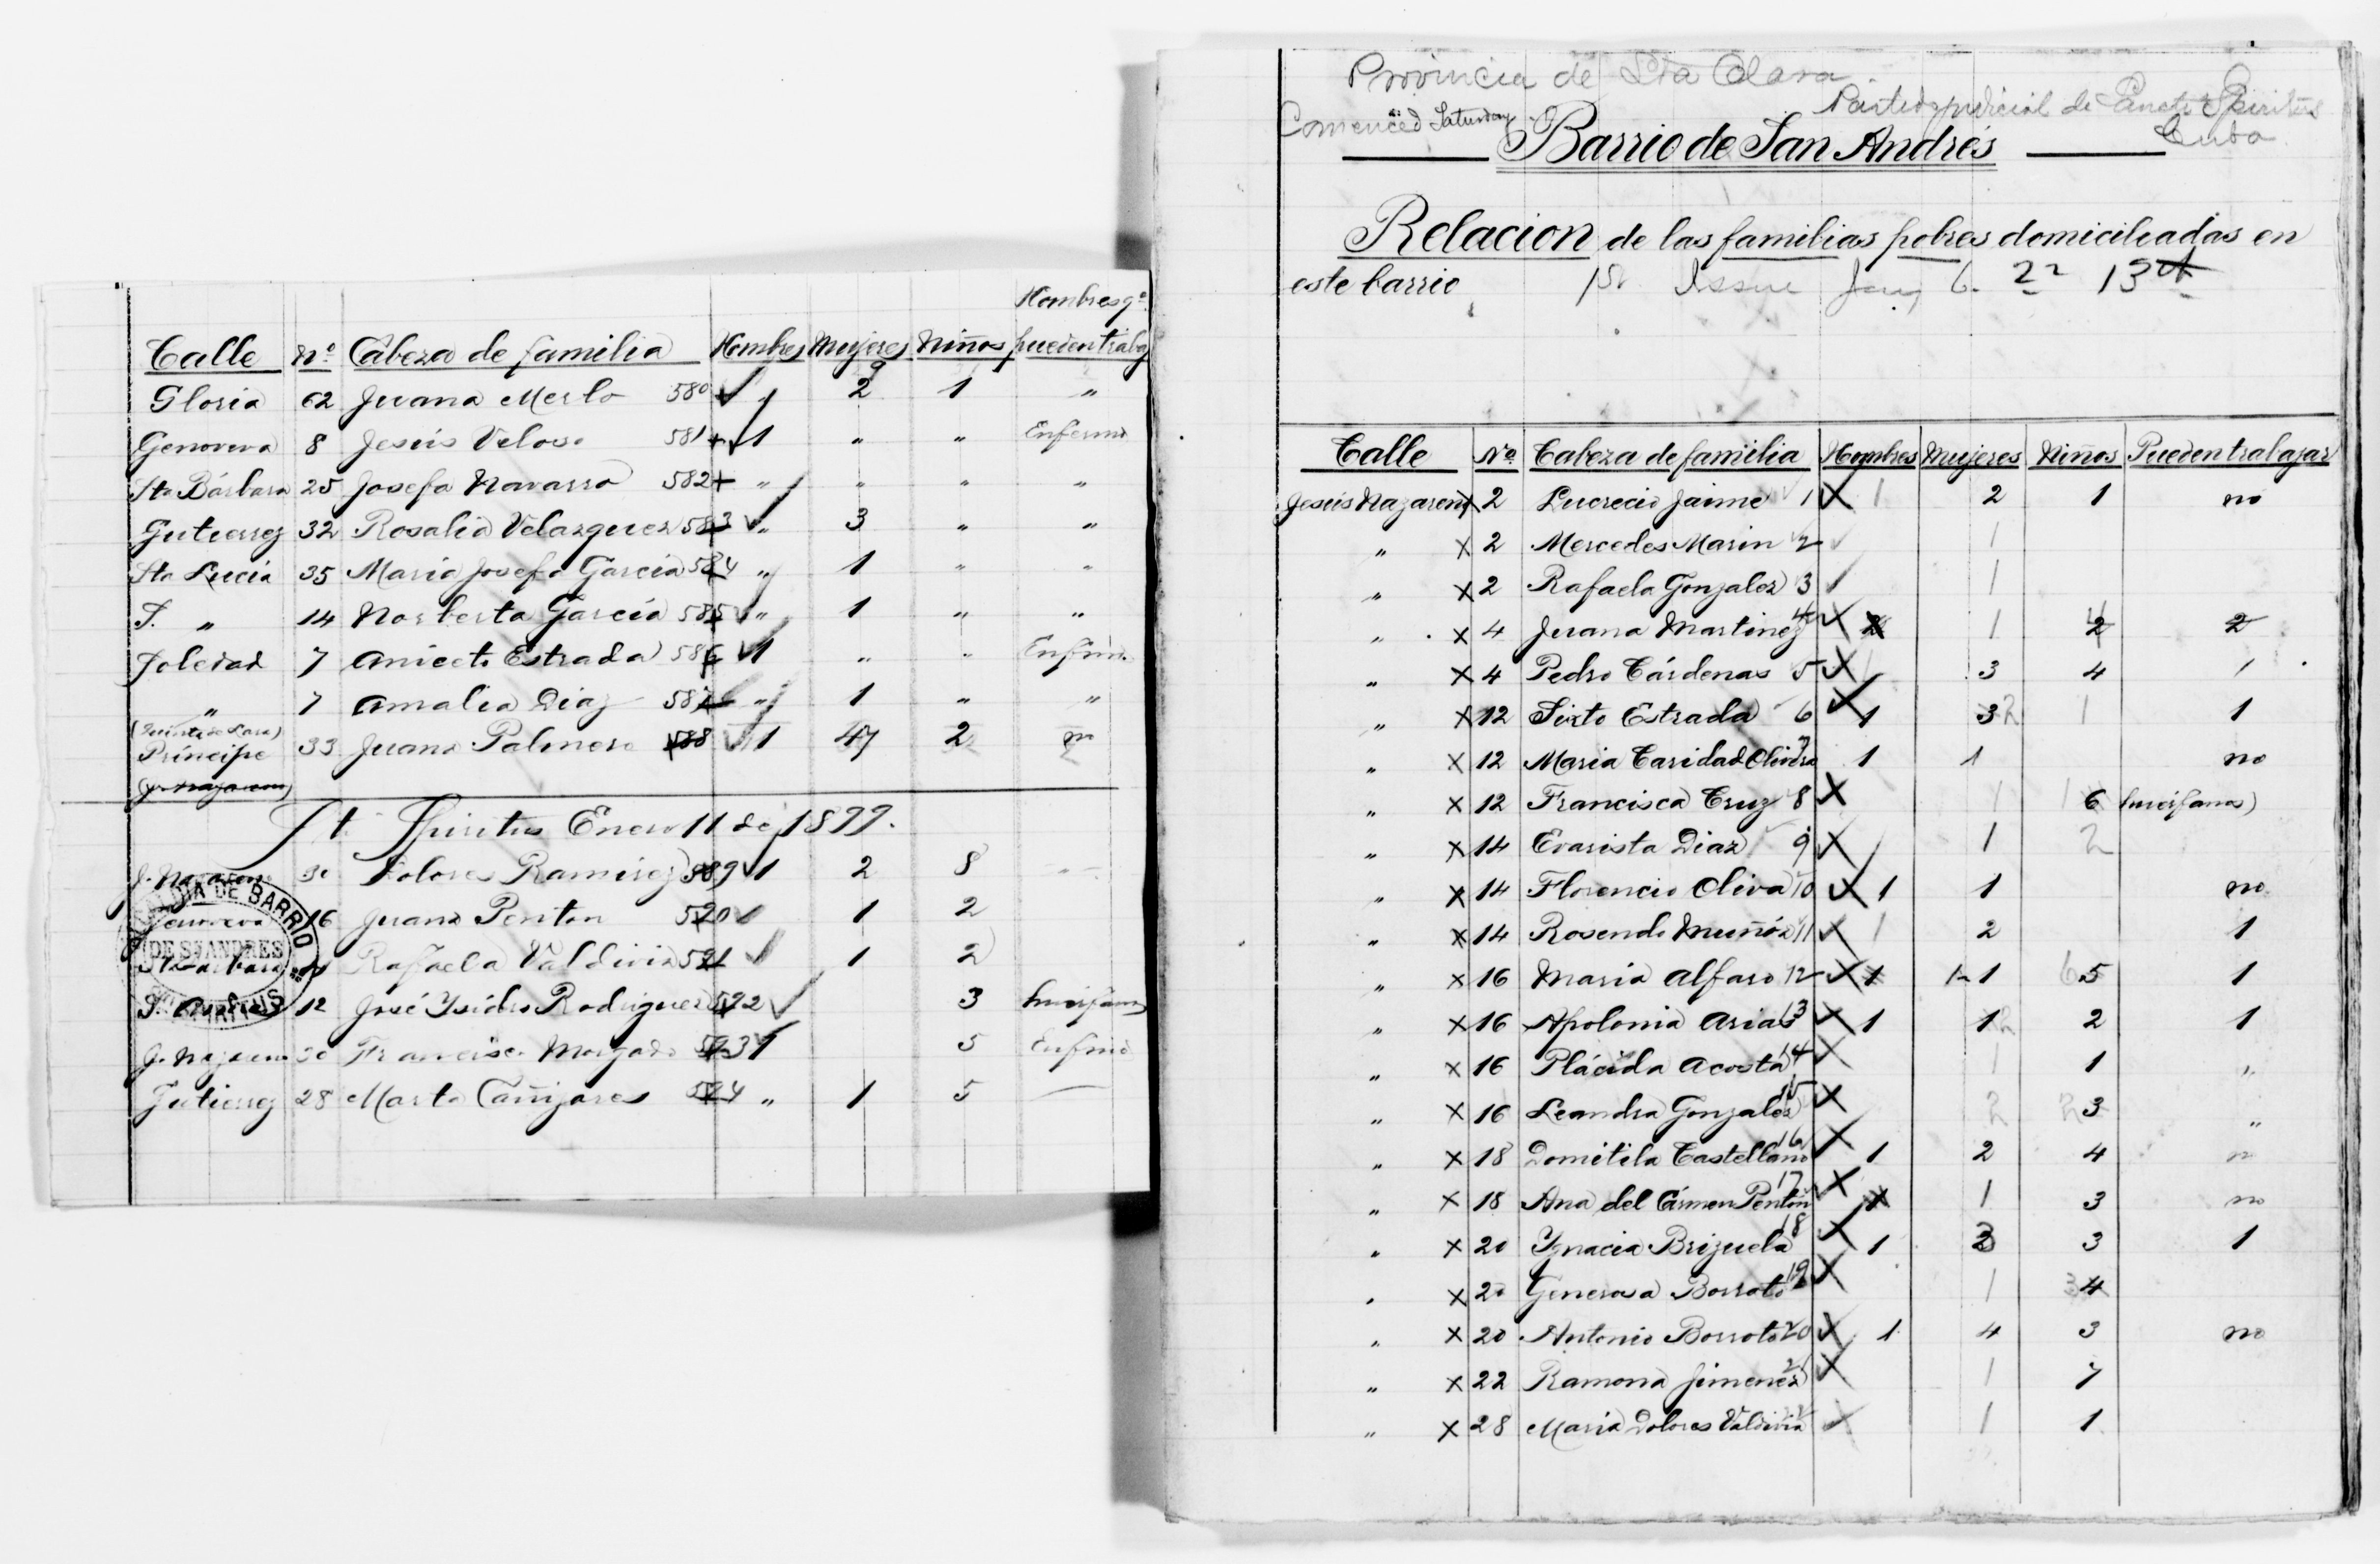 Hombres qe
Calle No Cabeza de familia Hombres Mujeres Niños pueden trabaj
Gloria 62 Juana Merlo 580 ✓ " 2 1 "
Genoveva 8 Jesús Veloso 581 + ✓ 1 " " Enfermo
Sta Bárbara 25 Josefa Navarro 582 + " " " "
Gutierrez 32 Rosalia Velazquez 583 ✓ " 3 " "
Sta Lucia 35 Maria Josefa Garcia 584 " 1 " "
S. " 14 Norberta Garcia 585 ✓ " 1 " "
Soledad 7 Aniceto Estrada 586 ✓ 1 " " Enfmo.
" 7 Amalia Diaz 587 " 1 " "
Principe 33 Juana Palmero 588 ✓ 1 4 2 no
St. Spiritus Enero 11 de 1899.
J. Nazareno 30 Dolores Ramirez 589 ✓ 1 2 8
Genoveva 16 Juana Penton 520 ✓ 1 2
Sta Barbara Rafaela Valdivia 521 ✓ 1 2
12 José Ysidro Rodriguez 522 ✓ 3 huerfanos
J. Nazareno 30 Francisco Morgado 523 ✓ 1 5 Enfmo
Gutierrez 28 Marta Cañizares 524 " 1 5 —
DE BARRIO
DE S. ANDRES
Provincia de Sta Clara.
Partido judicial de Sancti Spiritus
Comenced Saturday
Cuba
Barrio de San Andrés
Relacion de las familias pobres domiciliadas en
este barrio 1st Issue Jany 6. 2n 13th
Calle No Cabeza de familia Hombres Mujeres Niños Pueden trabajar
Jesús Nazareno X 2 Lucrecia Jaime 1 X 1 2 1 no
" X 2 Mercedes Marin 2 ✓ 1
" X 2 Rafaela Gonzalez 3 ✓ 1
" X 4 Juana Martinez 4 X 1 4 2 2
" X 4 Pedro Cárdenas 5 X 1 3 4 1
" X 12 Sixto Estrada 6 X 1 3 2 1 1
" X 12 Maria Caridad Olivera 7 1 1 no
" X 12 Francisca Cruz 8 X 1 6 huerfanos)
" X 14 Evarista Diaz 9 X 1 2
" X 14 Florencio Oliva 10 X 1 1 no
" X 14 Rosendo Muñóz 11 X 1 2 1
" X 16 Maria Alfaro 12 X 1 1 6 5 1
" X 16 Apolonia Arias 13 X 1 1 2 2 1
" X 16 Plácida Acosta 14 X 1 1 "
" X 16 Leandra Gonzalez 15 X 2 2 3 "
" X 18 Domitila Castellano 16 X 1 2 4 "
" X 18 Ana del Cármen Pentón 17 X 1 1 3 no
" X 20 Ygnacia Brizuela 18 X 1 3 3 1
" X 20 Generosa Borroto 19 X 1 3 4
" X 20 Antonio Borroto 20 X 1 4 3 no
" X 22 Ramona Jimenez 21 X 1 7
" X 28 Maria Dolores Valdivia 22 X 1 1